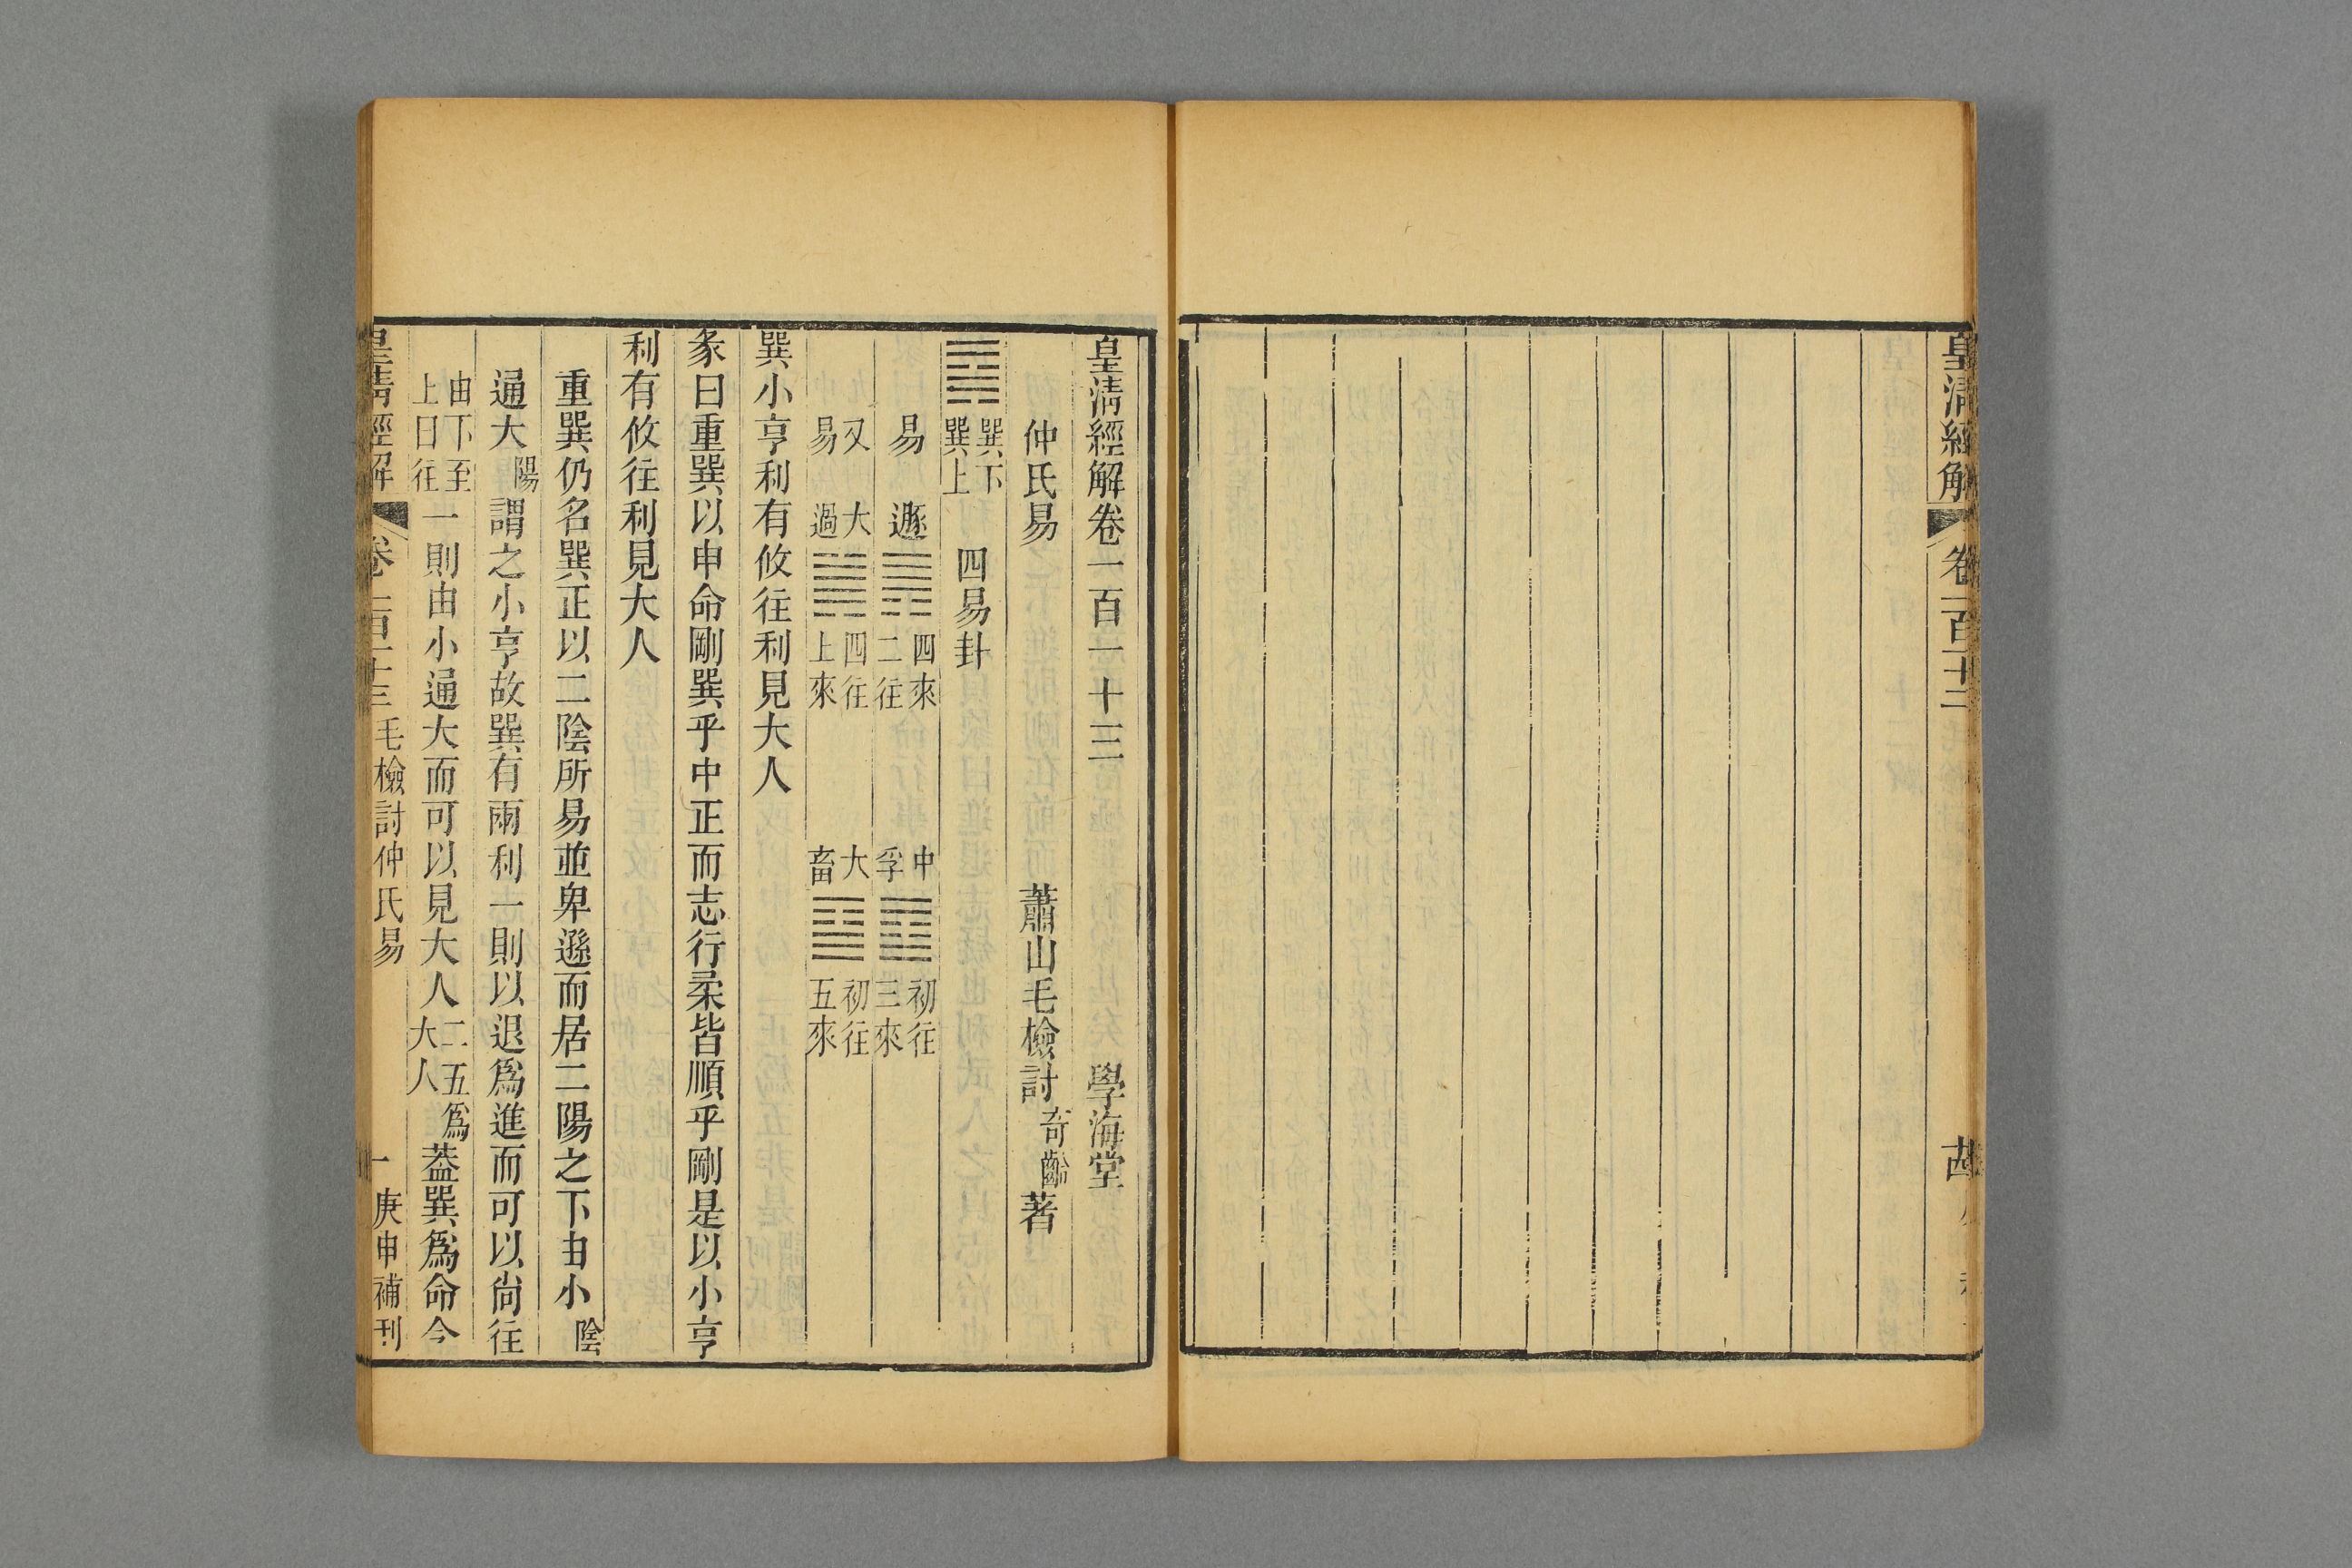 皇清經解 卷一百十二
皇清經解卷一百一十三 學海堂
仲氏易 蕭山毛檢討奇齡著
䷸ 巽下巽上 四易卦
易 遯䷠ 四來二往 中孚䷼ 初往三來
又易 大過䷛ 四往上來 大畜䷙ 初往五來
巽小亨利有攸往利見大人
彖曰重巽以申命剛巽乎中正而志行柔皆順乎剛是以小亨
利有攸往利見大人
重巽仍名巽正以二陰所易並卑遜而居二陽之下由小陰
通大陽謂之小亨故巽有兩利一則以退爲進而可以尚往
由下至上曰往一則由小通大而可以見大人二五爲大人蓋巽爲命今
皇清經解 卷一百一十三 毛檢討仲氏易 一 庚申補刊